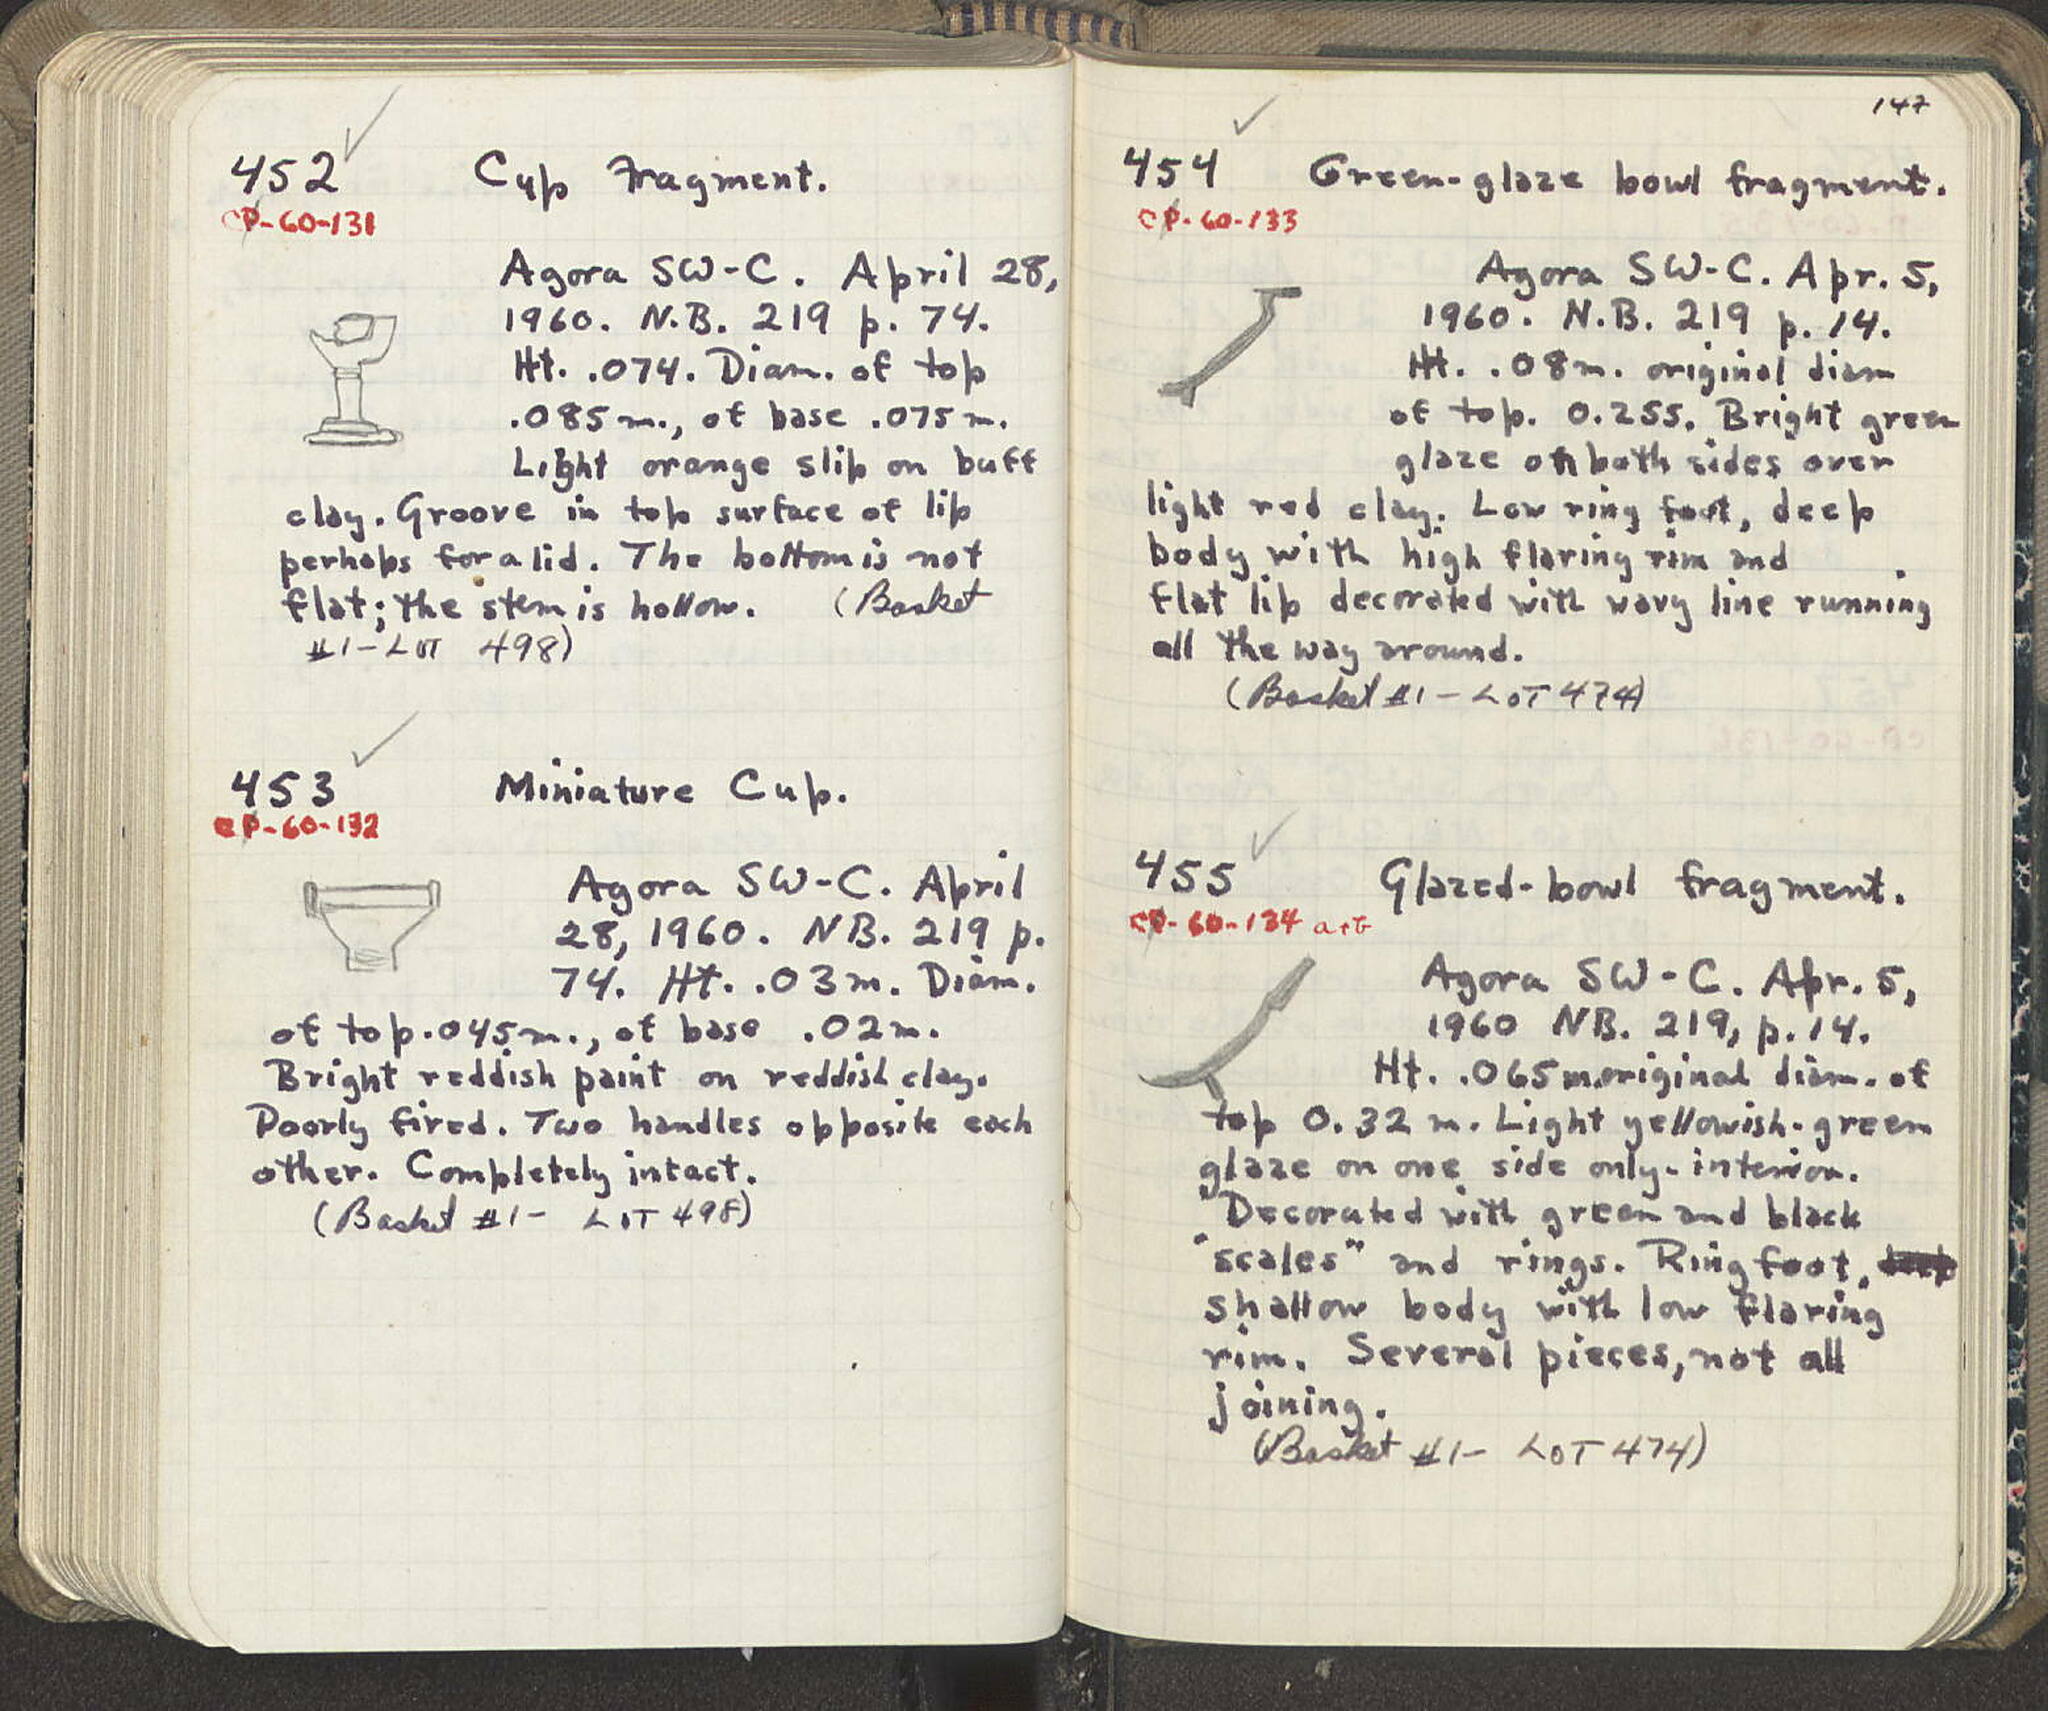 452 Cup Fragment.
CP-60-131
Agora SW-C. April 28,
1960. N.B. 219 p. 74.
Ht. .074. Diam. of top
.085m., of base .075m.
Light orange slip on buff
clay. Groove in top surface of lip
perhaps for a lid. The bottom is not
flat; the stem is hollow. (Basket
#1-LOT 498)
453 Miniature Cup.
CP-60-132
Agora SW-C. April
28, 1960. NB. 219 p.
74. Ht. .03m. Diam.
of top .045m., of base .02m.
Bright reddish paint on reddish clay.
Poorly fired. Two handles opposite each
other. Completely intact.
(Basket #1- LOT 498)
147
454 Green-glaze bowl fragment.
CP-60-133
Agora SW-C. Apr. 5,
1960. N.B. 219 p. 14.
Ht. .08m. original diam
of top. 0.255. Bright green
glaze on both sides over
light red clay. Low ring foot, deep
body with high flaring rim and
flat lip decorated with wavy line running
all the way around.
(Basket #1-LOT 474)
455 Glazed-bowl fragment.
CP-60-134 a+b
Agora SW-C. Apr. 5,
1960 NB. 219, p. 14.
Ht. .065m. original diam. of
top 0.32 m. Light yellowish-green
glaze on one side only-interior.
Decorated with green and black
"scales" and rings. Ring foot,
shallow body with low flaring
rim. Several pieces, not all
joining.
(Basket #1- LOT 474)